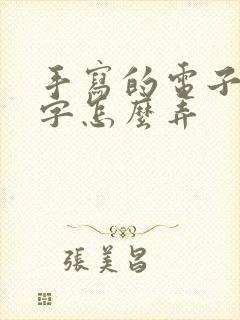 手寫的電子
字怎麼弄
張美昌